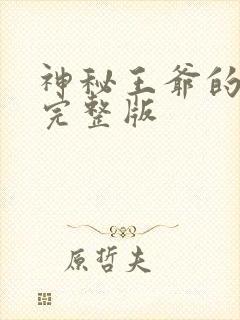 神秘王爷的
完整版
原哲夫